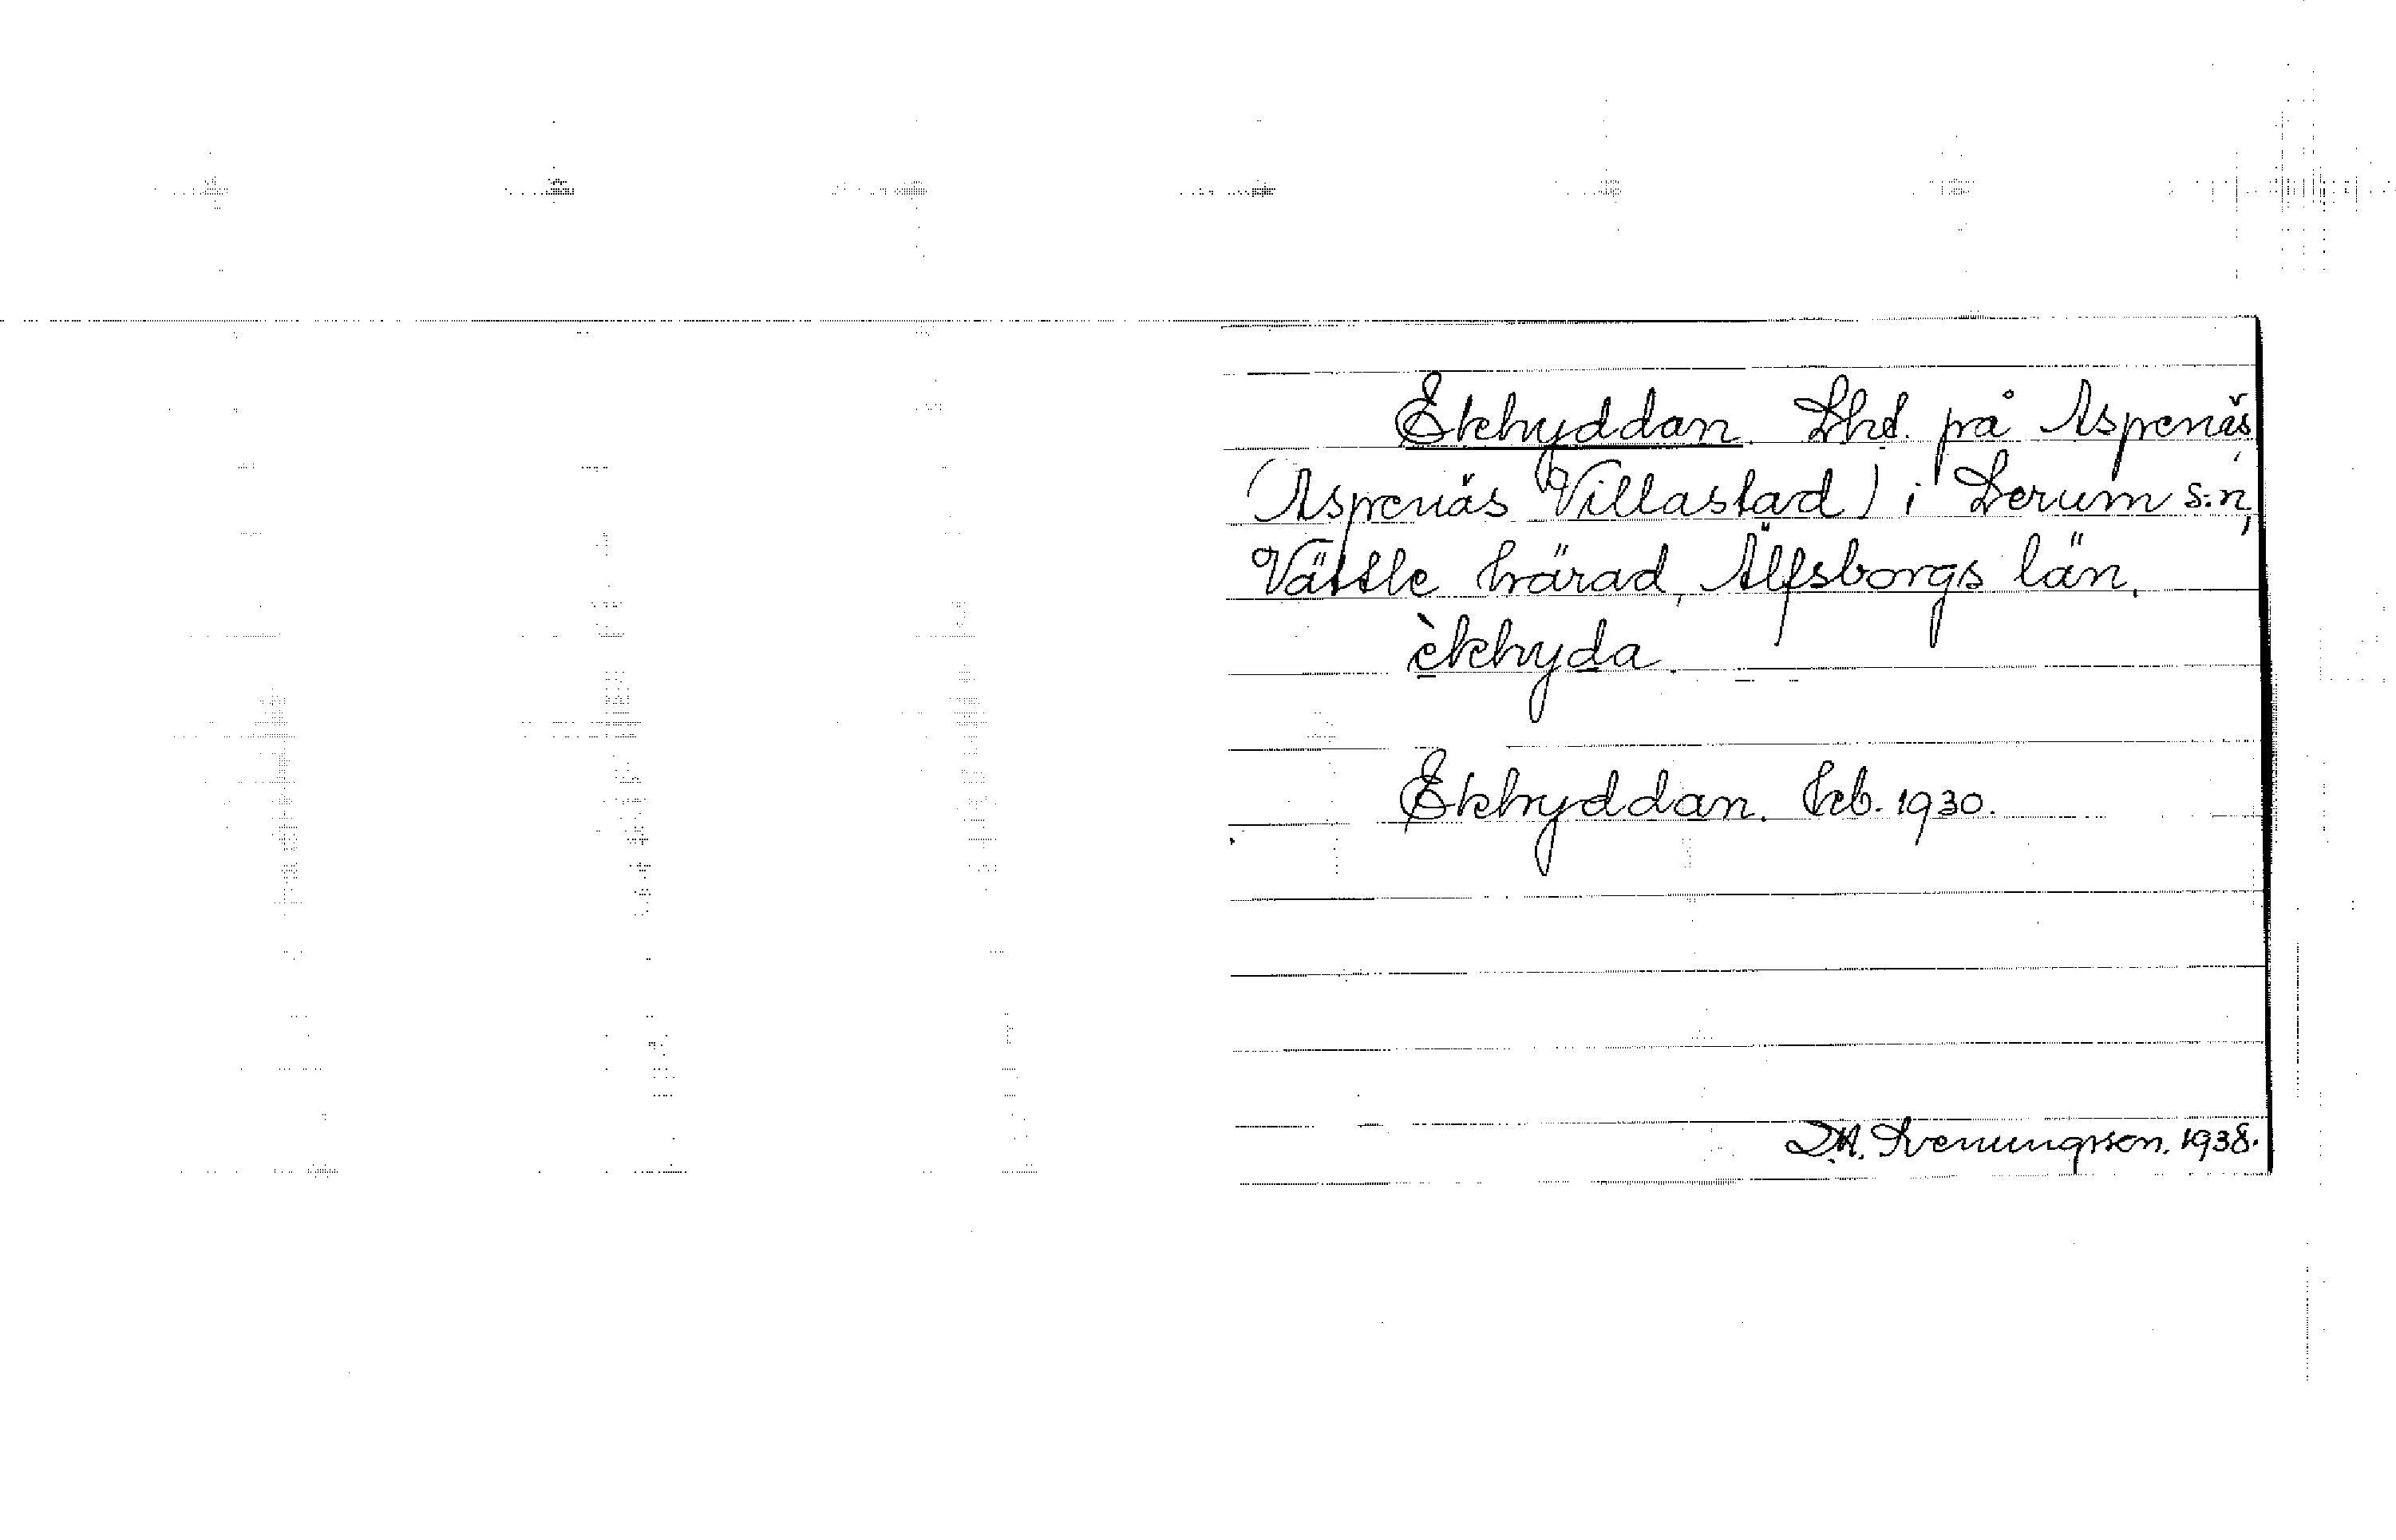 Ekhyddan. Lht. på Aspenäs
(Aspenäs Villastad) i Lerum s:n,
Vättle härad, Älfsborgs län.
èkhyda.
Ekhyddan. hrb. 1930.
D.A. Svenungsson. 1938.